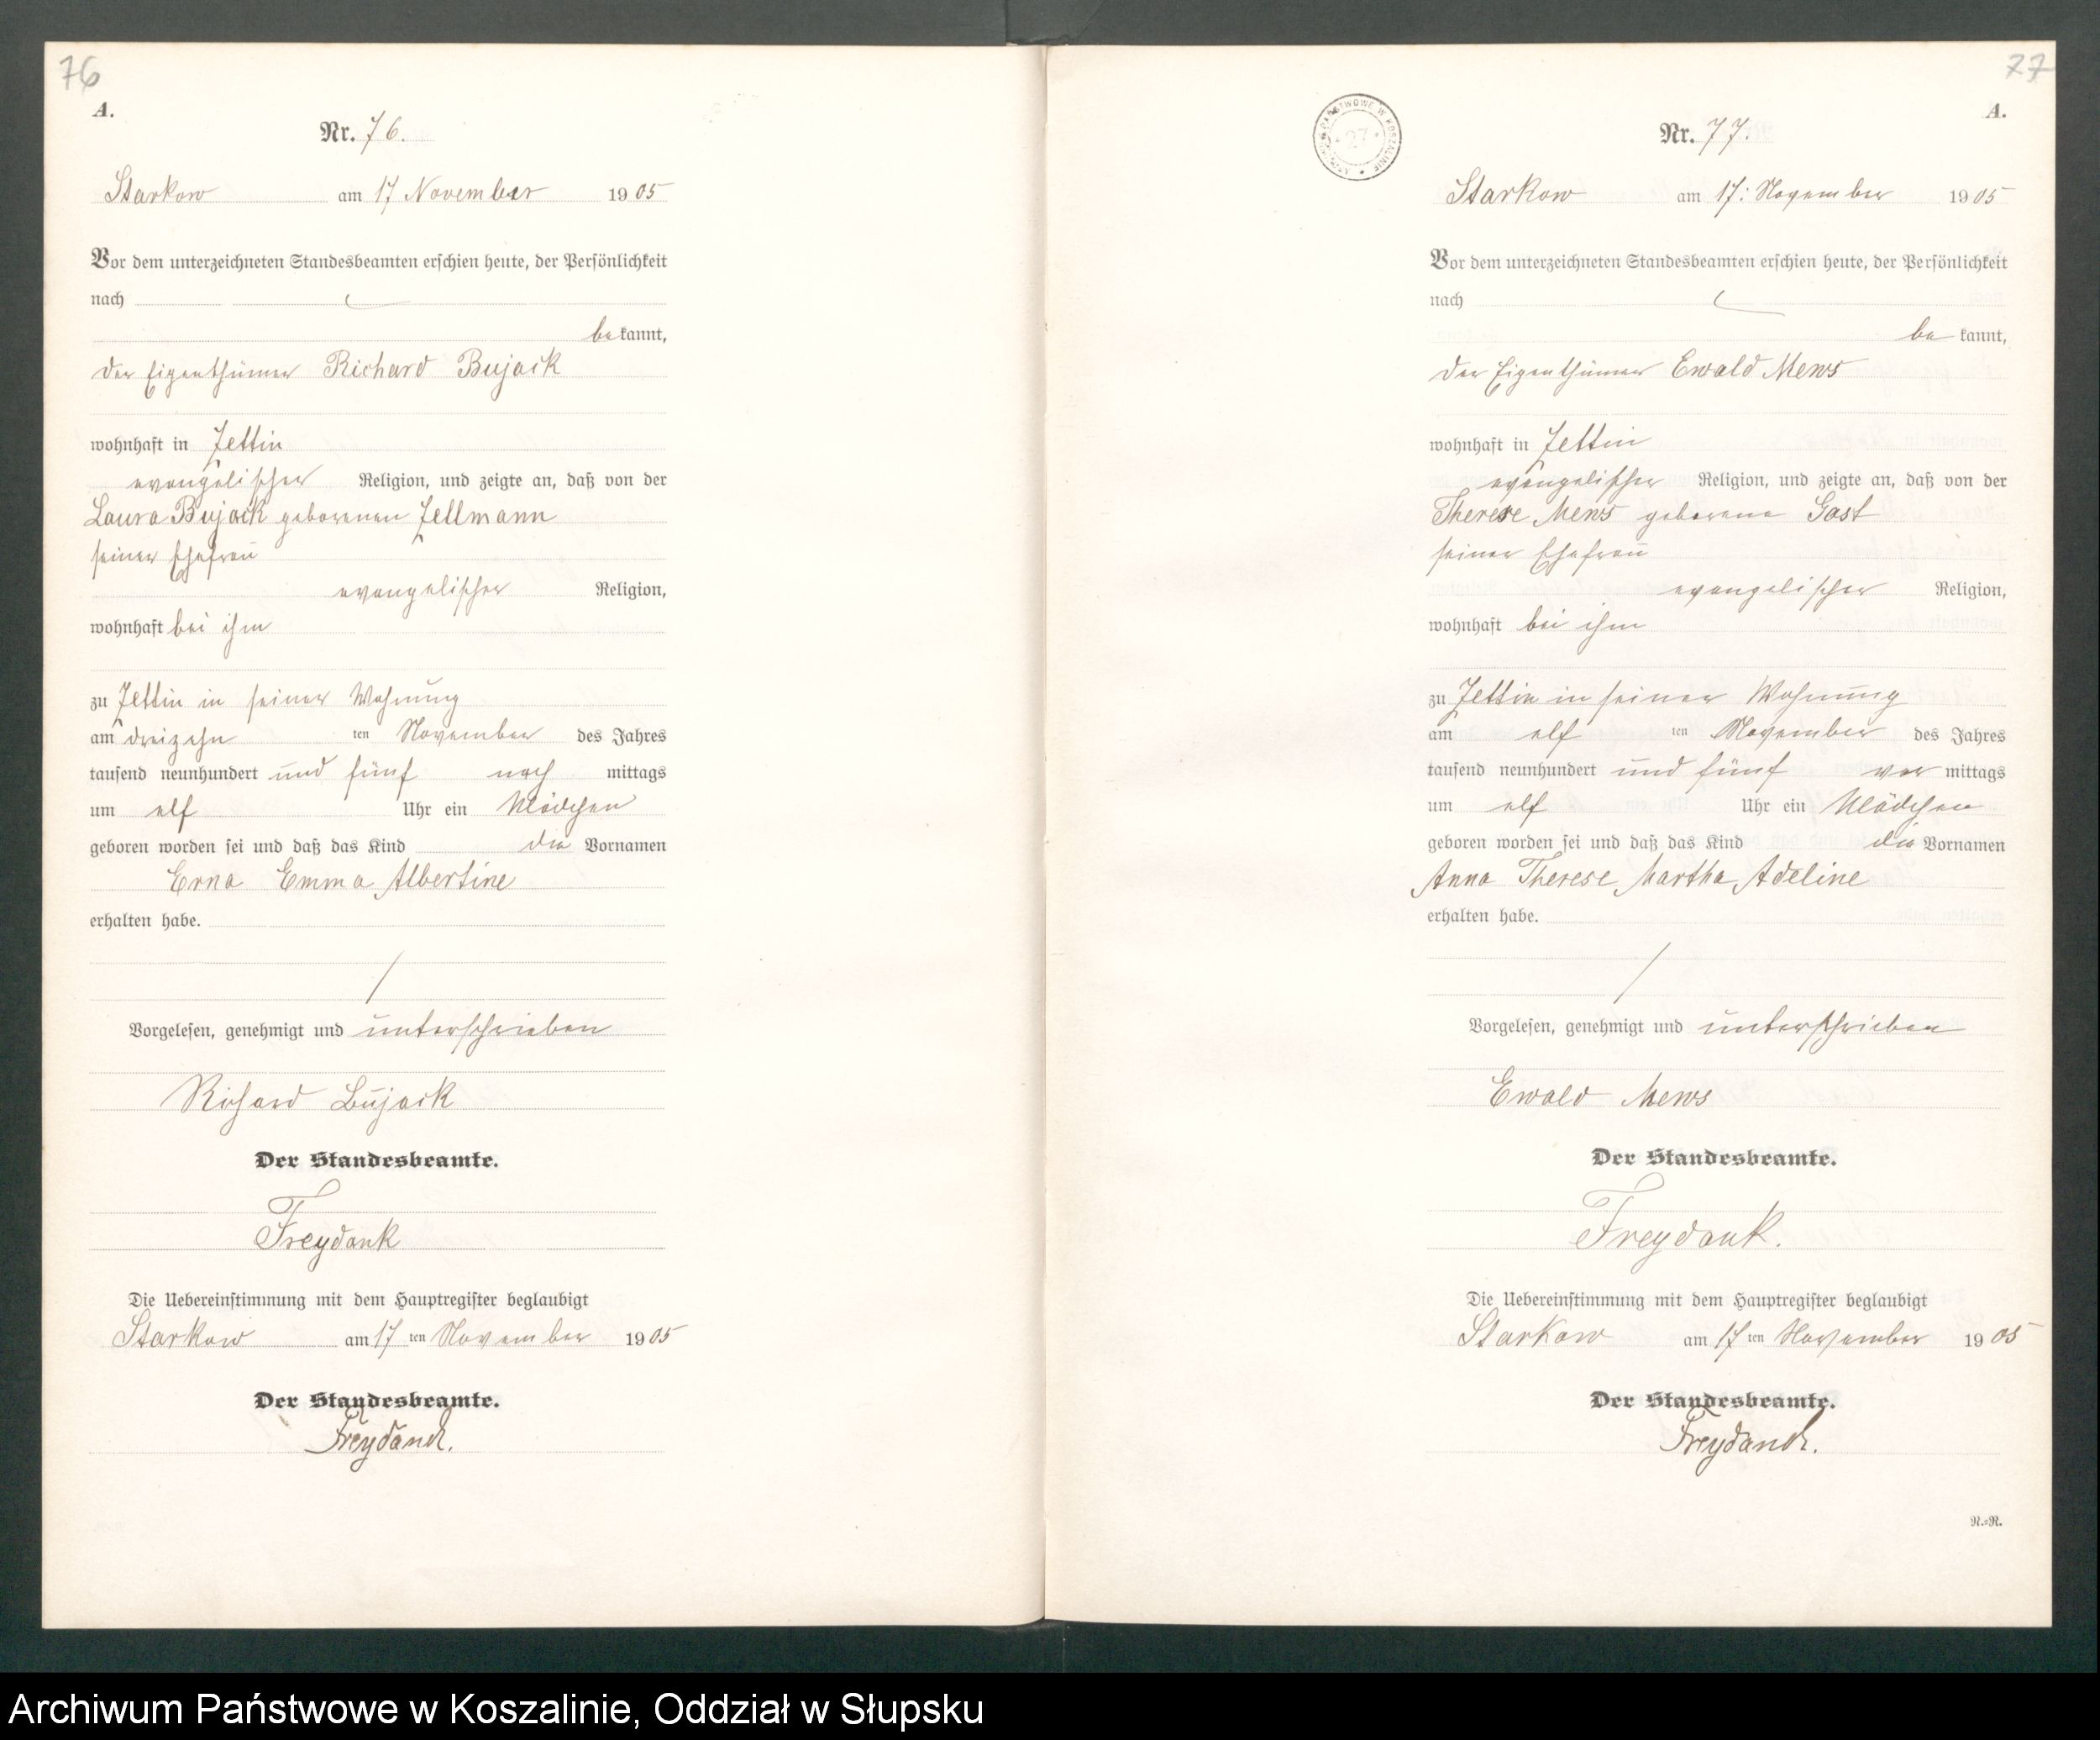 76
A.
Nr. 76.
Starkow am 17 November 1905
Vor dem unterzeichneten Standesbeamten erschien heute, der Persönlichkeit
nach
bekannt,
der Eigenthümer Richard Bujack
wohnhaft in Zettin
evangelischer Religion, und zeigte an, daß von der
Laura Bujack geborenen Zellmann
seiner Ehefrau
evangelischer Religion,
wohnhaft bei ihm
zu Zettin in seiner Wohnung
am dreizehn ten November des Jahres
tausend neunhundert und fünf nach mittags
um elf Uhr ein Mädchen
geboren worden sei und daß das Kind die Vornamen
Erna Emma Albertine
erhalten habe.
Vorgelesen, genehmigt und unterschrieben
Richard Bujack
Der Standesbeamte.
Freydank
Die Uebereinstimmung mit dem Hauptregister beglaubigt
Starkow am 17 ten November 1905
Der Standesbeamte.
Freydank.
77
A.
27
Nr. 77.
Starkow am 17. November 1905
Vor dem unterzeichneten Standesbeamten erschien heute, der Persönlichkeit
nach
be kannt,
der Eigenthümer Ewald Mews
wohnhaft in Zettin
evangelischer Religion, und zeigte an, daß von der
Therese Mews geborene Gast
seiner Ehefrau
evangelischer Religion,
wohnhaft bei ihm
zu Zettin in seiner Wohnung
am elf ten November des Jahres
tausend neunhundert und fünf vor mittags
um elf Uhr ein Mädchen
geboren worden sei und daß das Kind die Vornamen
Anna Therese Martha Adeline
erhalten habe.
Vorgelesen, genehmigt und unterschrieben
Ewald Mews
Der Standesbeamte.
Freydank.
Die Uebereinstimmung mit dem Hauptregister beglaubigt
Starkow am 17 ten November 1905
Der Standesbeamte.
Freydank.
R.=R.
Archiwum Państwowe w Koszalinie, Oddział w Słupsku